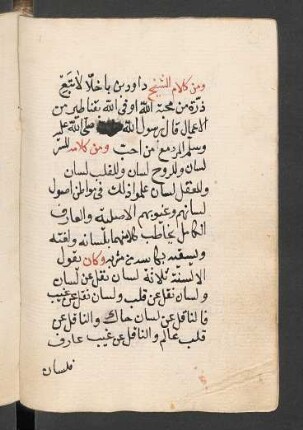 ومن كلام الشيخ داود بن باخلا لا تبع
ذرة من محبة الله او في الله بقناطير من
الاعمال قال رسول الله صلى الله عليه
وسلم المرء مع من احب ومن كلامه للسر
لسان وللروح لسان وللقلب لسان
وللعقل لسان علموا ذلك في بواطن اصول
لسانهم وغيوبهم الاصلية والعارف
الكامل يخاطب كلا منهما بلسانه ولغته
ويسقيه بكاسه من وكان يقول
الالسنة ثلاثة لسان نقل عن لسان
ولسان نقل عن قلب ولسان نقل عن غيب
فالناقل عن لسان حاك والناقل عن
قلب عالم والناقل عن غيب عارف
فلسان